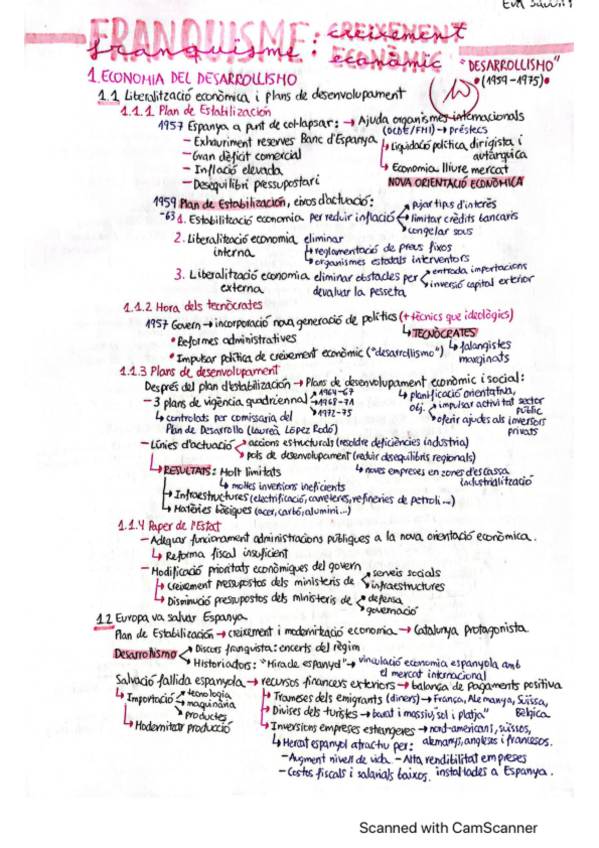 FRANQUISME: creixement
franquisme: econòmic "DESARROLLISMO"
(1959-1975)
1. ECONOMIA DEL DESARROLLISMO
1.1 Liberalització econòmica i plans de desenvolupament
1.1.1 Plan de Estabilización
1957 Espanya a punt de col·lapsar: → Ajuda organismes internacionals
(OCDE/FMI) → préstecs
- Exhauriment reserves Banc d'Espanya
↳ Liquidació política dirigista i
autàrquica
- Gran dèficit comercial
- Inflació elevada
↳ Economia lliure mercat
- Desequilibri pressupostari
NOVA ORIENTACIÓ ECONÒMICA
1959 Plan de Estabilización, eixos d'actuació:
-63
1. Estabilització economia per reduir inflació
pujar tips d'interès
limitar crèdits bancaris
congelar sous
2. Liberalització economia eliminar
interna
reglamentació de preus fixos
organismes estatals interventors
3. Liberalització economia eliminar obstacles per
externa
entrada importacions
inversió capital exterior
devaluar la pesseta
1.1.2 Hora dels tecnòcrates
1957 Govern → incorporació nova generació de polítics (+ tècnics que ideològics)
↳ TECNÒCRATES
• Reformes administratives
• Impulsar política de creixement econòmic ("desarrollismo")
↳ falangistes
marginats
1.1.3 Plans de desenvolupament
Després del plan d'estabilización → Plans de desenvolupament econòmic i social:
- 3 plans de vigència quadriennal
1964-67
1968-71
1972-75
↳ planificació orientativa,
obj.
impulsar activitat sector
públic
oferir ajudes als inversors
privats
↳ controlats per comissaria del
Plan de Desarrollo (Laureà López Rodó)
- Línies d'actuació
accions estructurals (resoldre deficiències indústria)
pols de desenvolupament (reduir desequilibris regionals)
↳ noves empreses en zones d'escassa
industrialització
↳ RESULTATS: Molt limitats
↳ moltes inversions ineficients
↳ Infraestructures (electrificació, carreteres, refineries de petroli...)
↳ Matèries bàsiques (acer, carbó, alumini...)
1.1.4 Paper de l'Estat
- Adequar funcionament administracions públiques a la nova orientació econòmica.
↳ Reforma fiscal insuficient
- Modificació prioritats econòmiques del govern
↳ Creixement pressupostos dels ministeris de
serveis socials
infraestructures
↳ Disminució pressupostos dels ministeris de
defensa
governació
1.2 Europa va salvar Espanya
Plan de Estabilización → creixement i modernització economia → Catalunya protagonista
Desarrollismo
Discurs franquista: encerts del règim
Historiadors: "Miracle espanyol" → vinculació economia espanyola amb
el mercat internacional
Salvació fallida espanyola → recursos financers exteriors → balança de pagaments positiva
↳ Importació
tecnologia
maquinària
productes
↳ Modernitzar producció
↳ Trameses dels emigrants (diners) → França, Alemanya, Suïssa,
Bèlgica
↳ Divises dels turistes → barat i massiu, "sol i platja"
↳ Inversions empreses estrangeres → nord-americans, suïssos,
alemanys, angleses i franceses.
↳ Mercat espanyol atractiu per:
- Augment nivell de vida - Alta rendibilitat empreses
instal·lades a Espanya.
- Costos fiscals i salarials baixos.
Scanned with CamScanner